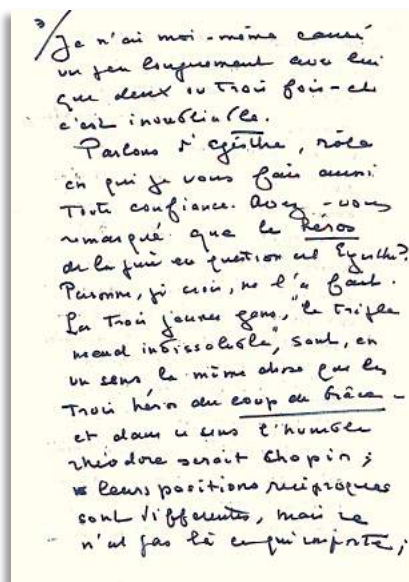 3/
Je n'ai moi-même causé
un peu longuement avec lui
que deux ou trois fois - et
c'est inoubliable.
Parlons d'Egisthe, rôle
en qui je vous fais aussi
toute confiance. Avez-vous
remarqué que le héros
de la pièce en question est Egisthe?
Personne, je crois, ne l'a fait.
Les trois jeunes gens, "le triple
nœud indissoluble", sont, en
un sens la même chose que les
trois héros du coup de Grâce -
et dans ce sens l'humble
Théodore serait Chopin ;
leurs positions réciproques
sont différentes, mais ce
n'est pas là ce qui importe ;